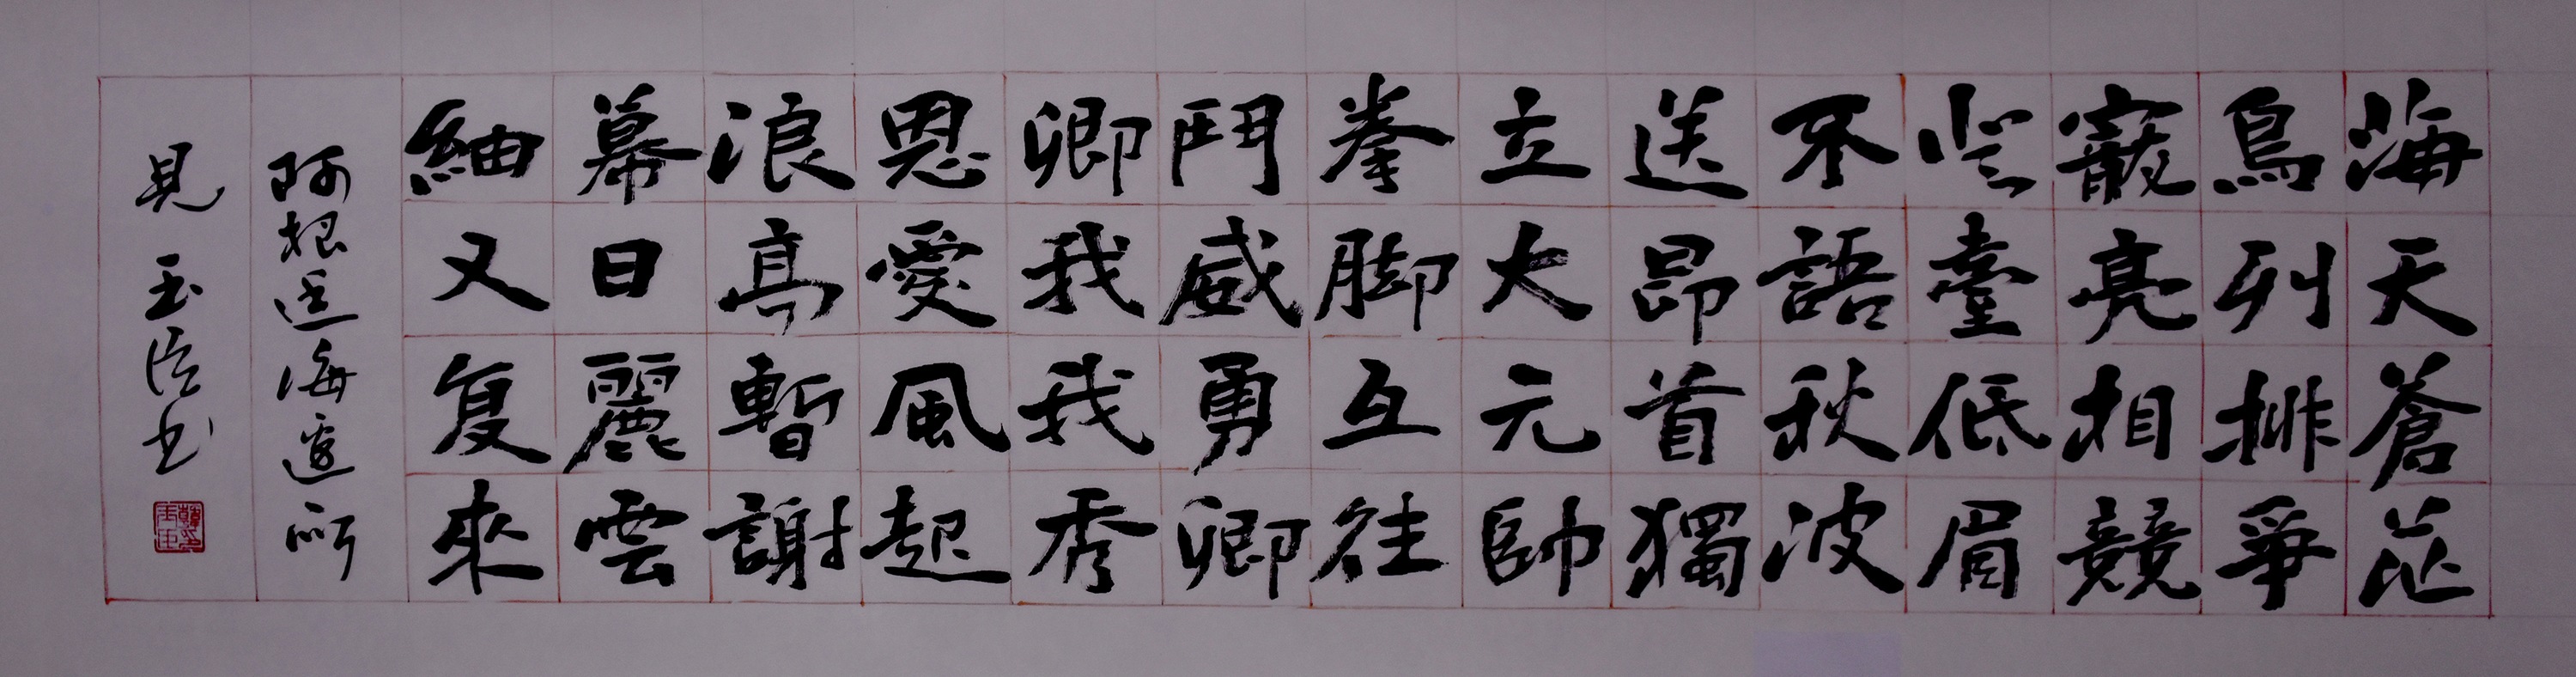 海天蒼茫
鳥列排爭
寵亮相競
登臺低眉
不語秋波
送昂首獨
立大元帥
拳脚互往
鬥威勇卿
卿我我秀
恩愛風起
浪高暫謝
幕日麗雲
紬又复來
阿根廷海邊所
見 玉书